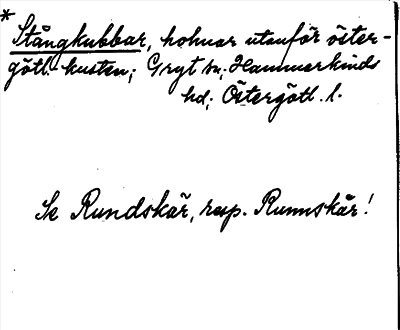 *
Stångkubbar, holmar utanför öster-
götl. kusten; Gryt sn; Hammarkinds
hd; Östergötl. l.
Se Rundskär, resp. Runnskär!